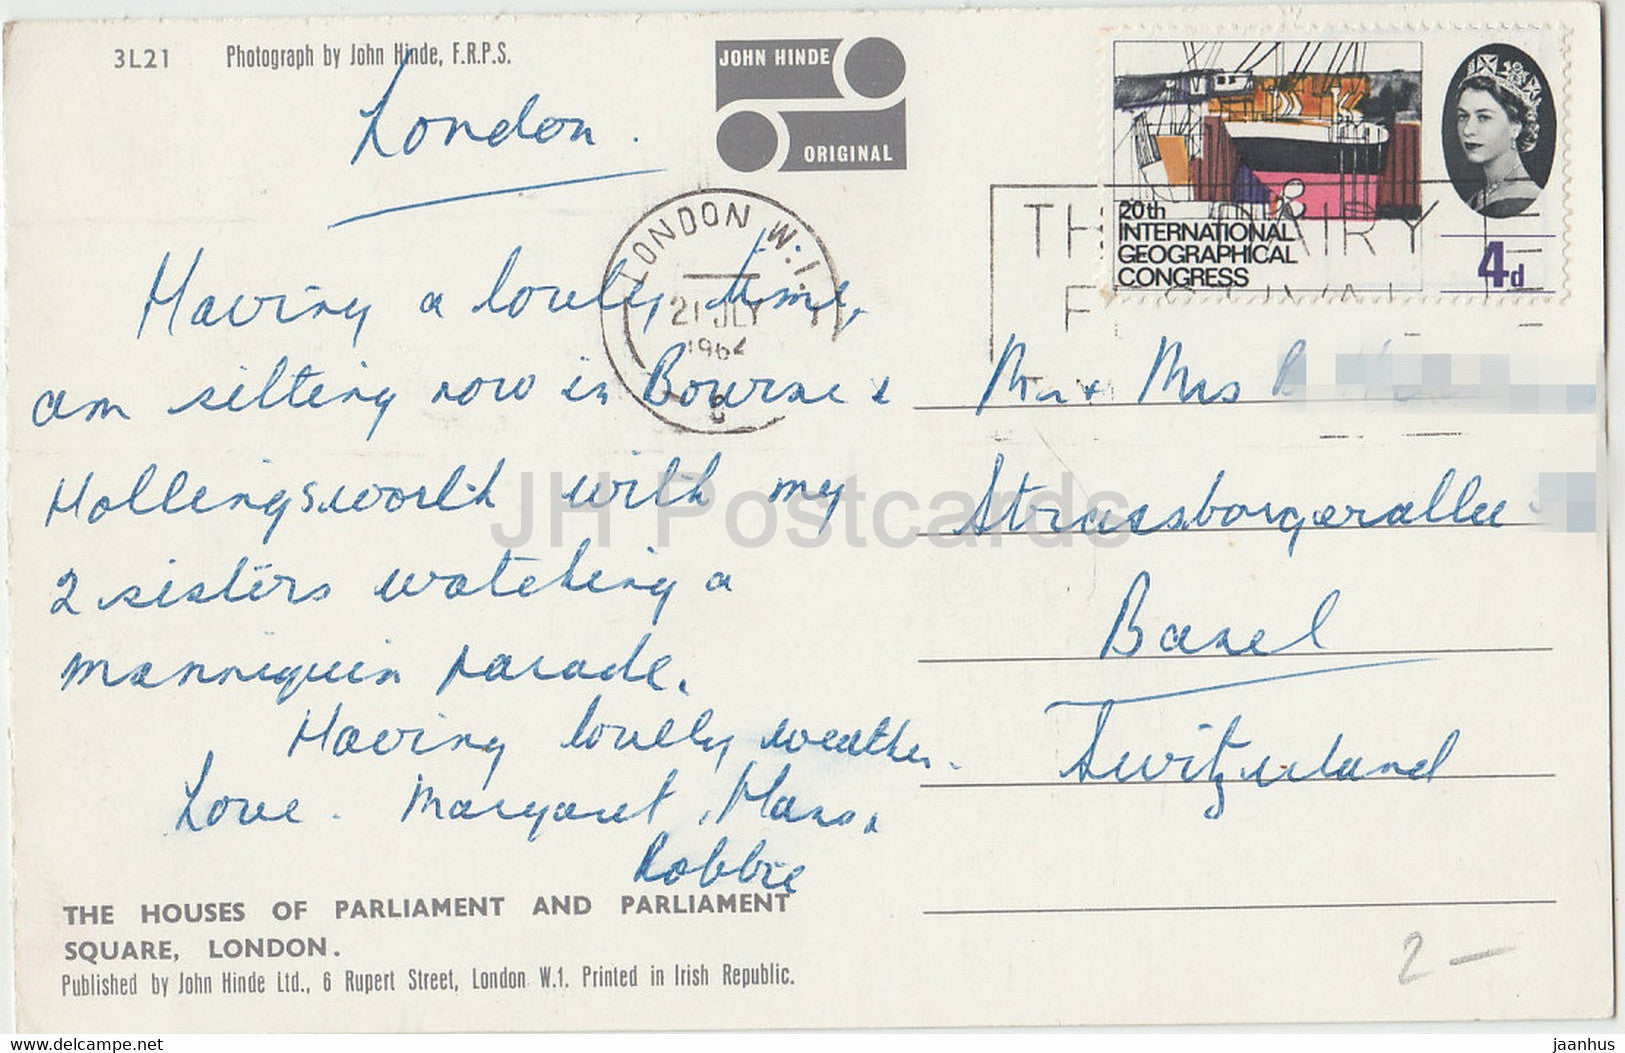 3L21 Photograph by John Hinde, F.R.P.S.
JOHN HINDE
ORIGINAL
London.
20th
INTERNATIONAL
GEOGRAPHICAL
CONGRESS
4d
LONDON W.1.
21 JLY
1964
Having a lovely time,
am sitting now in Bourne &
Hollingsworth with my
2 sisters watching a
mannequin parade.
Having lovely weather.
Love. Margaret, Hans,
Robbie
Mr & Mrs
Strassburgerallee
Basel
Switzerland
THE HOUSES OF PARLIAMENT AND PARLIAMENT
SQUARE, LONDON.
Published by John Hinde Ltd., 6 Rupert Street, London W.1. Printed in Irish Republic.
2 —
JH Postcards
oldthing.net
jaanhus